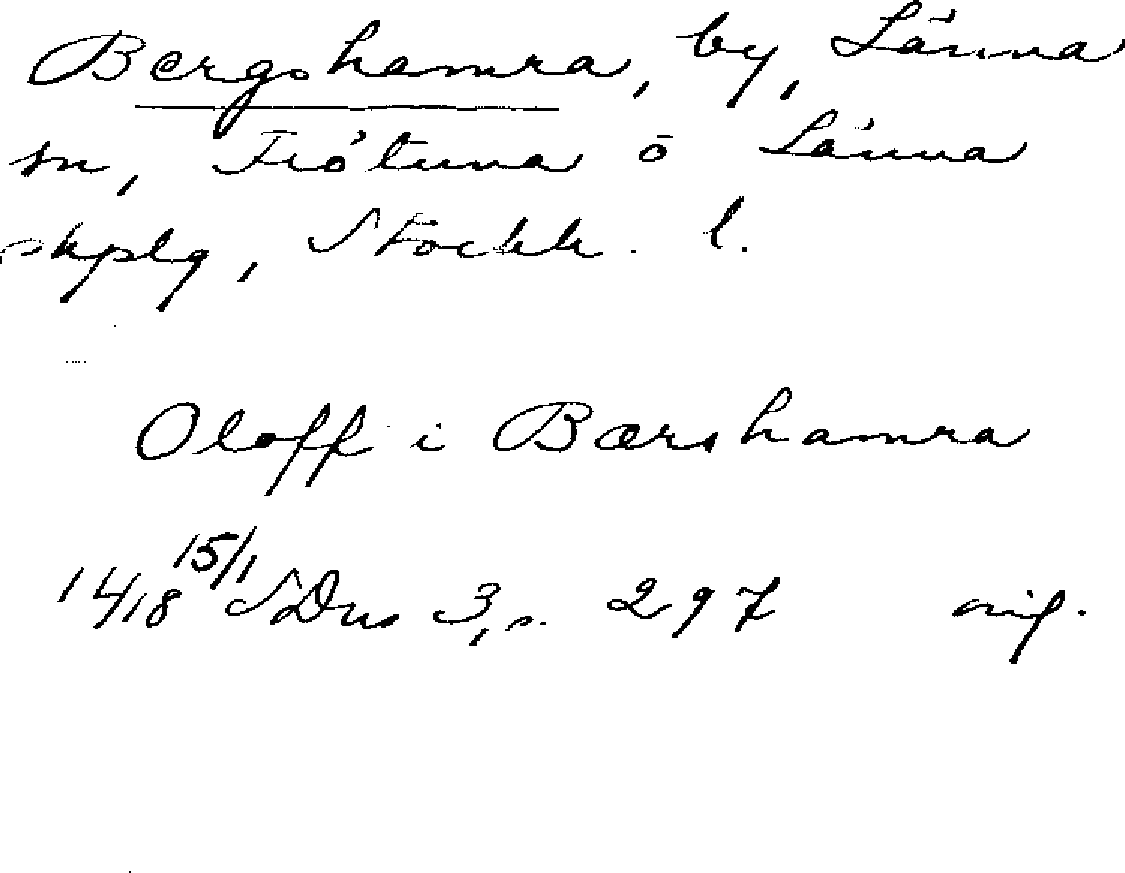 Bergshamra, by, Länna
sn, Frötuna o Länna
skplg, Stockh. l.
Oloff i Bærshamra
1418 15/1 SDns 3, s. 297 orig.